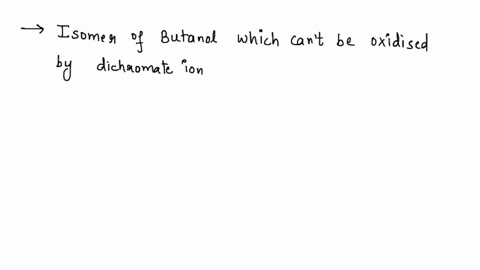 → Isomer of Butanol which can't be oxidised
by dichromate ion